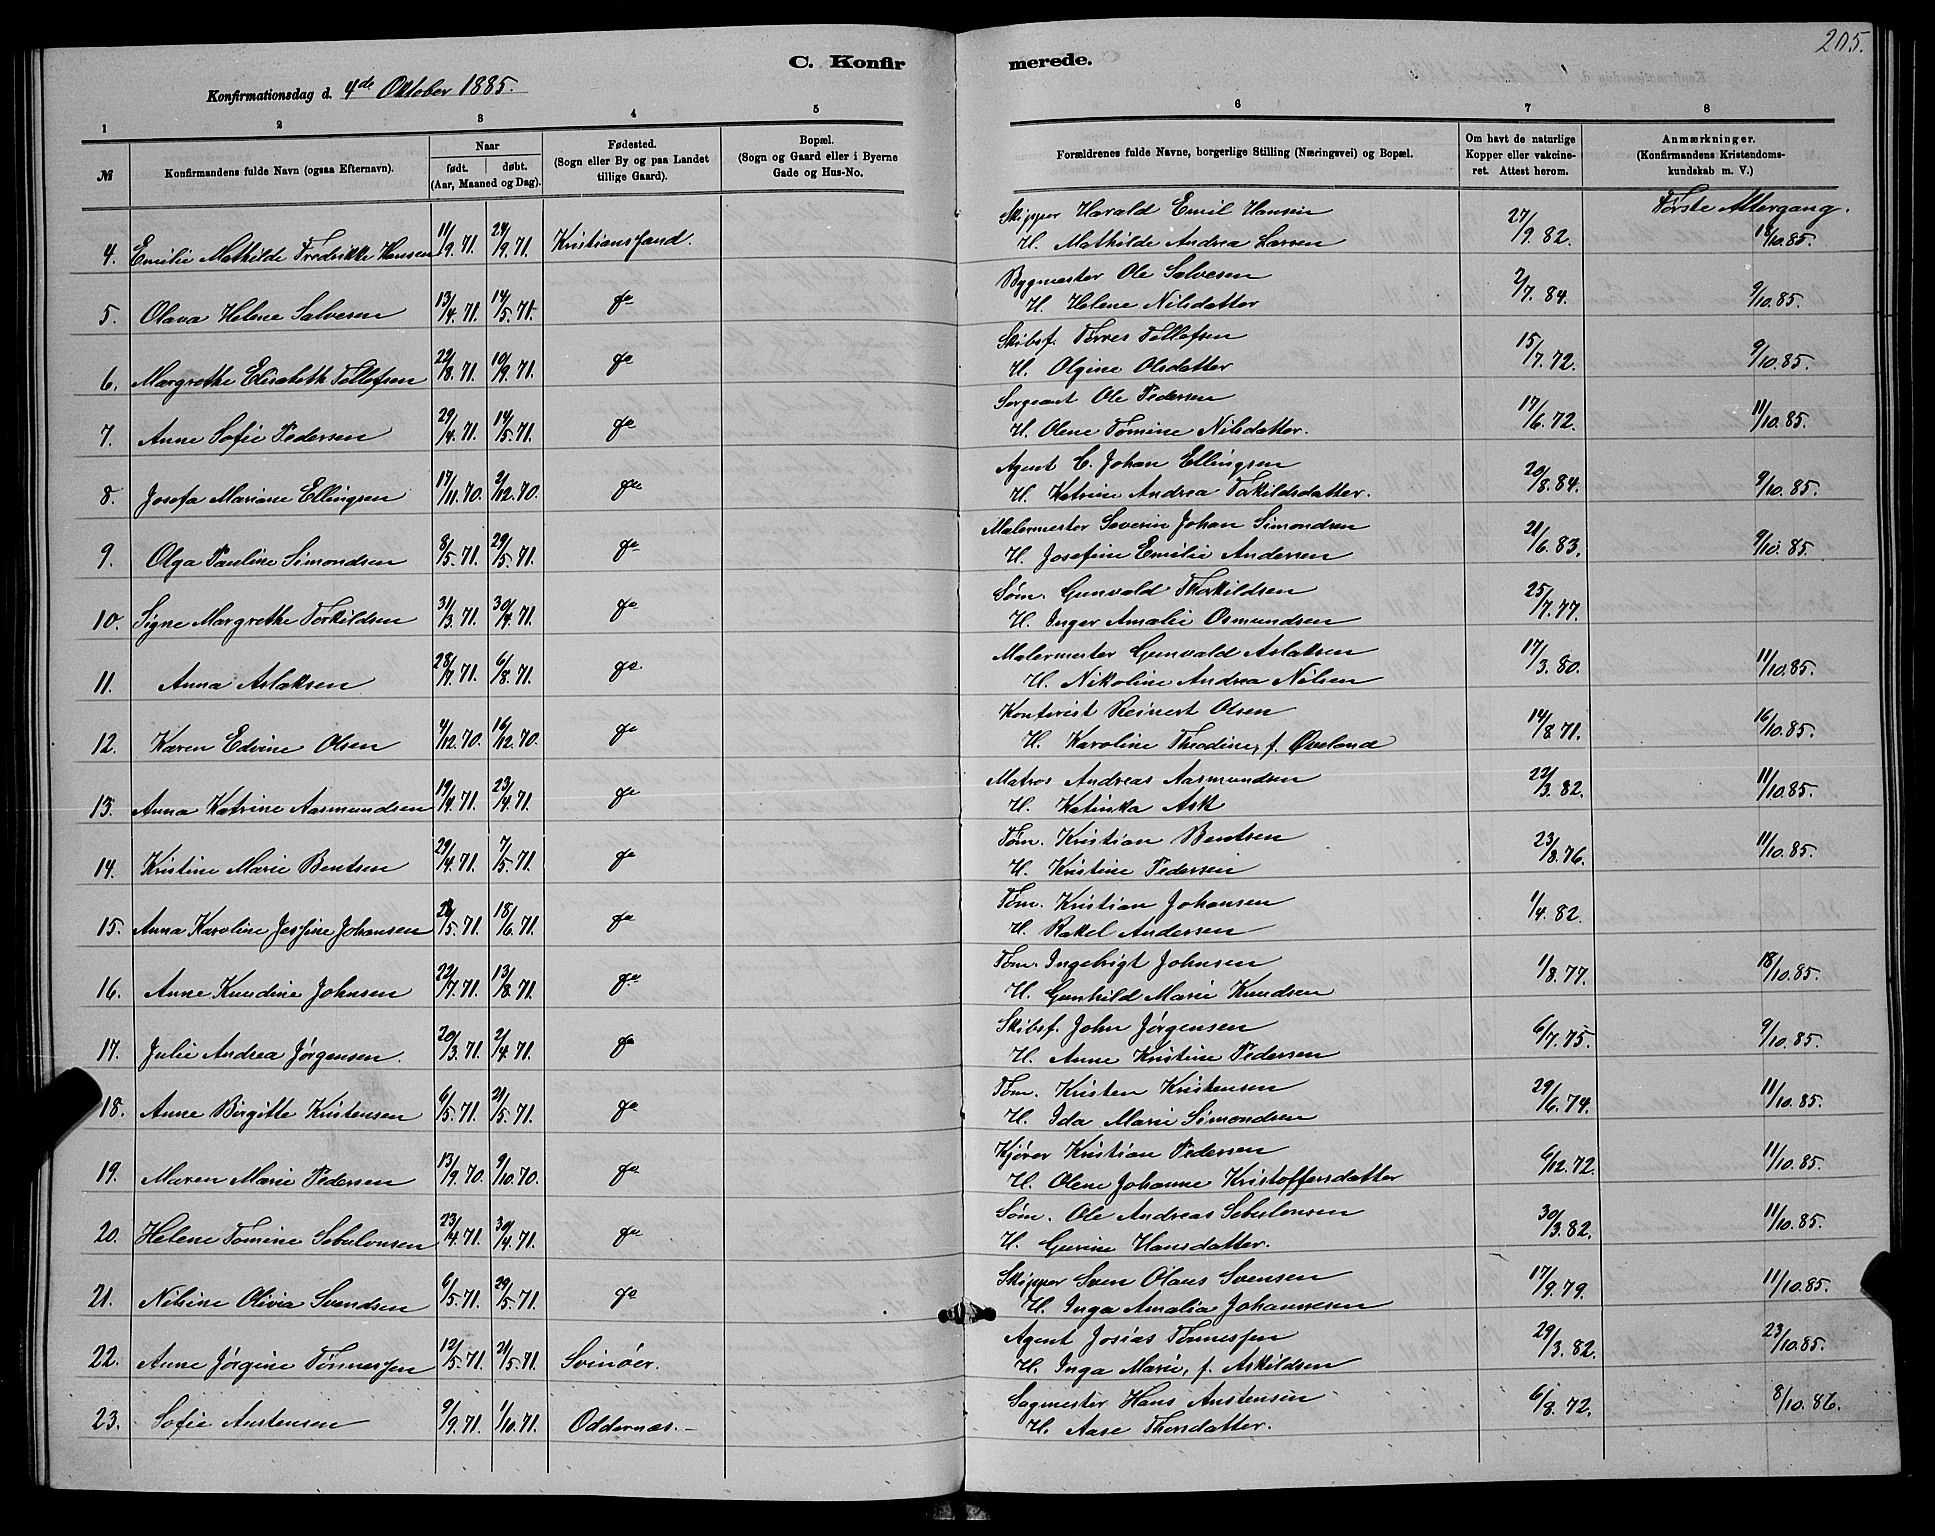 205.
C. Konfirmerede.
Konfirmationsdag d. 4de Oktober 1885.
1 2 3 4 5 6 7 8
№ Konfirmandens fulde Navn (ogsaa Efternavn). Naar født. døbt. (Aar, Maaned og Dag). Fødested. (Sogn eller By og paa Landet tillige Gaard). Bopæl. (Sogn og Gaard eller i Byerne Gade og Hus-No. Forældrenes fulde Navne, borgerlige Stilling (Næringsvei) og Bopæl. Om havt de naturlige Kopper eller vakcineret. Attest herom. Anmærkninger. (Konfirmandens Kristendomskundskab m. V.)
Første Altergang.
4. Emilie Mathilde Fredrikke Hansen 11/9.71. 24/9.71. Kristianssand. Skipper Harald Emil Hansen 27/9.82. 18/10.85.
H. Mathilde Andrea Larsen
5. Olava Helene Salvesen 13/4.71. 14/5.71. do Bygmester Ole Salvesen 2/7.84. 9/10.85.
H. Helene Nilsdatter
6. Margrethe Elisabeth Tellefsen 22/8.71. 10/9.71. do Skibsf. Tørres Tellefsen 15/7.72. 9/10.85.
H. Olgine Olsdatter
7. Anne Sofie Pedersen 29/4.71. 14/5.71. do Sergeant Ole Pedersen 17/6.72. 11/10.85.
H. Olene Tomine Nilsdatter.
8. Josefa Mariane Ellingsen 17/11.70. 2/12.70. do Agent C. Johan Ellingsen 20/8.84. 9/10.85.
H. Katrine Andrea Torkildsdatter.
9. Olga Pauline Simondsen 8/5.71. 29/5.71. do Malermester Severin Johan Simondsen 21/6.83. 9/10.85.
H. Josefine Emilie Andersen
10. Signe Margrethe Torkildsen 31/3.71. 30/4.71. do Søm. Gunvald Thorkildsen 25/7.77.
H. Inger Amalie Osmundsen
11. Anna Aslaksen 28/7.71. 6/8.71. do Malermester Gunvald Aslaksen 17/3.80. 11/10.85.
H. Nikoline Andrea Nilsen
12. Karen Edvine Olsen 4/12.70. 16/12.70. do Kontorist Reinert Olsen 14/8.71. 16/10.85.
H. Karoline Thodine, f. Øveland
13. Anna Katrine Aasmundsen 19/4.71. 23/4.71. do Matros Andreas Aasmundsen 22/3.82. 11/10.85.
H. Katinka Ask
14. Kristine Marie Bentsen 29/4.71. 7/5.71. do Tøm. Kristian Bentsen 23/8.76. 11/10.85.
H. Kristine Pedersen
15. Anna Karoline Josfine Johansen 28/5.71. 18/6.71. do Tøm. Kristian Johansen 1/4.82.
H. Rakel Andersen
16. Anne Knudine Johnsen 22/7.71. 13/8.71. do Tøm. Ingebrigt Johnsen 1/8.77. 18/10.85.
H. Gunhild Marie Knudsen
17. Julie Andrea Jørgensen. 20/3.71. 2/4.71. do Skibsf. John Jørgensen 6/7.75. 9/10.85.
H. Anne Kristine Pedersen
18. Anne Birgitte Kristensen 6/5.71. 21/5.71. do Tøm. Kristen Kristensen 29/6.74. 11/10.85.
H. Ida Marie Simondsen
19. Maren Marie Pedersen 13/9.70. 9/10.70. do Kjører Kristian Pedersen 6/12.72. 11/10.85.
H. Olene Johanne Kristoffersdatter
20. Helene Tomine Sebulonsen 23/4.71. 30/4.71. do Søm. Ole Andreas Sebulonsen 30/3.82. 11/10.85.
H. Gurine Hansdatter.
21. Nilsine Olivia Svendsen 6/5.71. 29/5.71. do Skipper Sven Olaus Svensen 17/9.79. 11/10.85.
H. Inga Amalia Johannesen
22. Anne Jørgine Tønnessen 12/5.71. 21/5.71. Svinøer. Agent Josias Tønnessen 29/3.82. 23/10.85.
H. Inga Marie, f. Askildsen
23. Sofie Austensen 9/9.71. 1/10.71. Oddernæs. Sagmester Hans Austensen 6/8.72. 8/10.86.
H. Aase Thorsdatter.